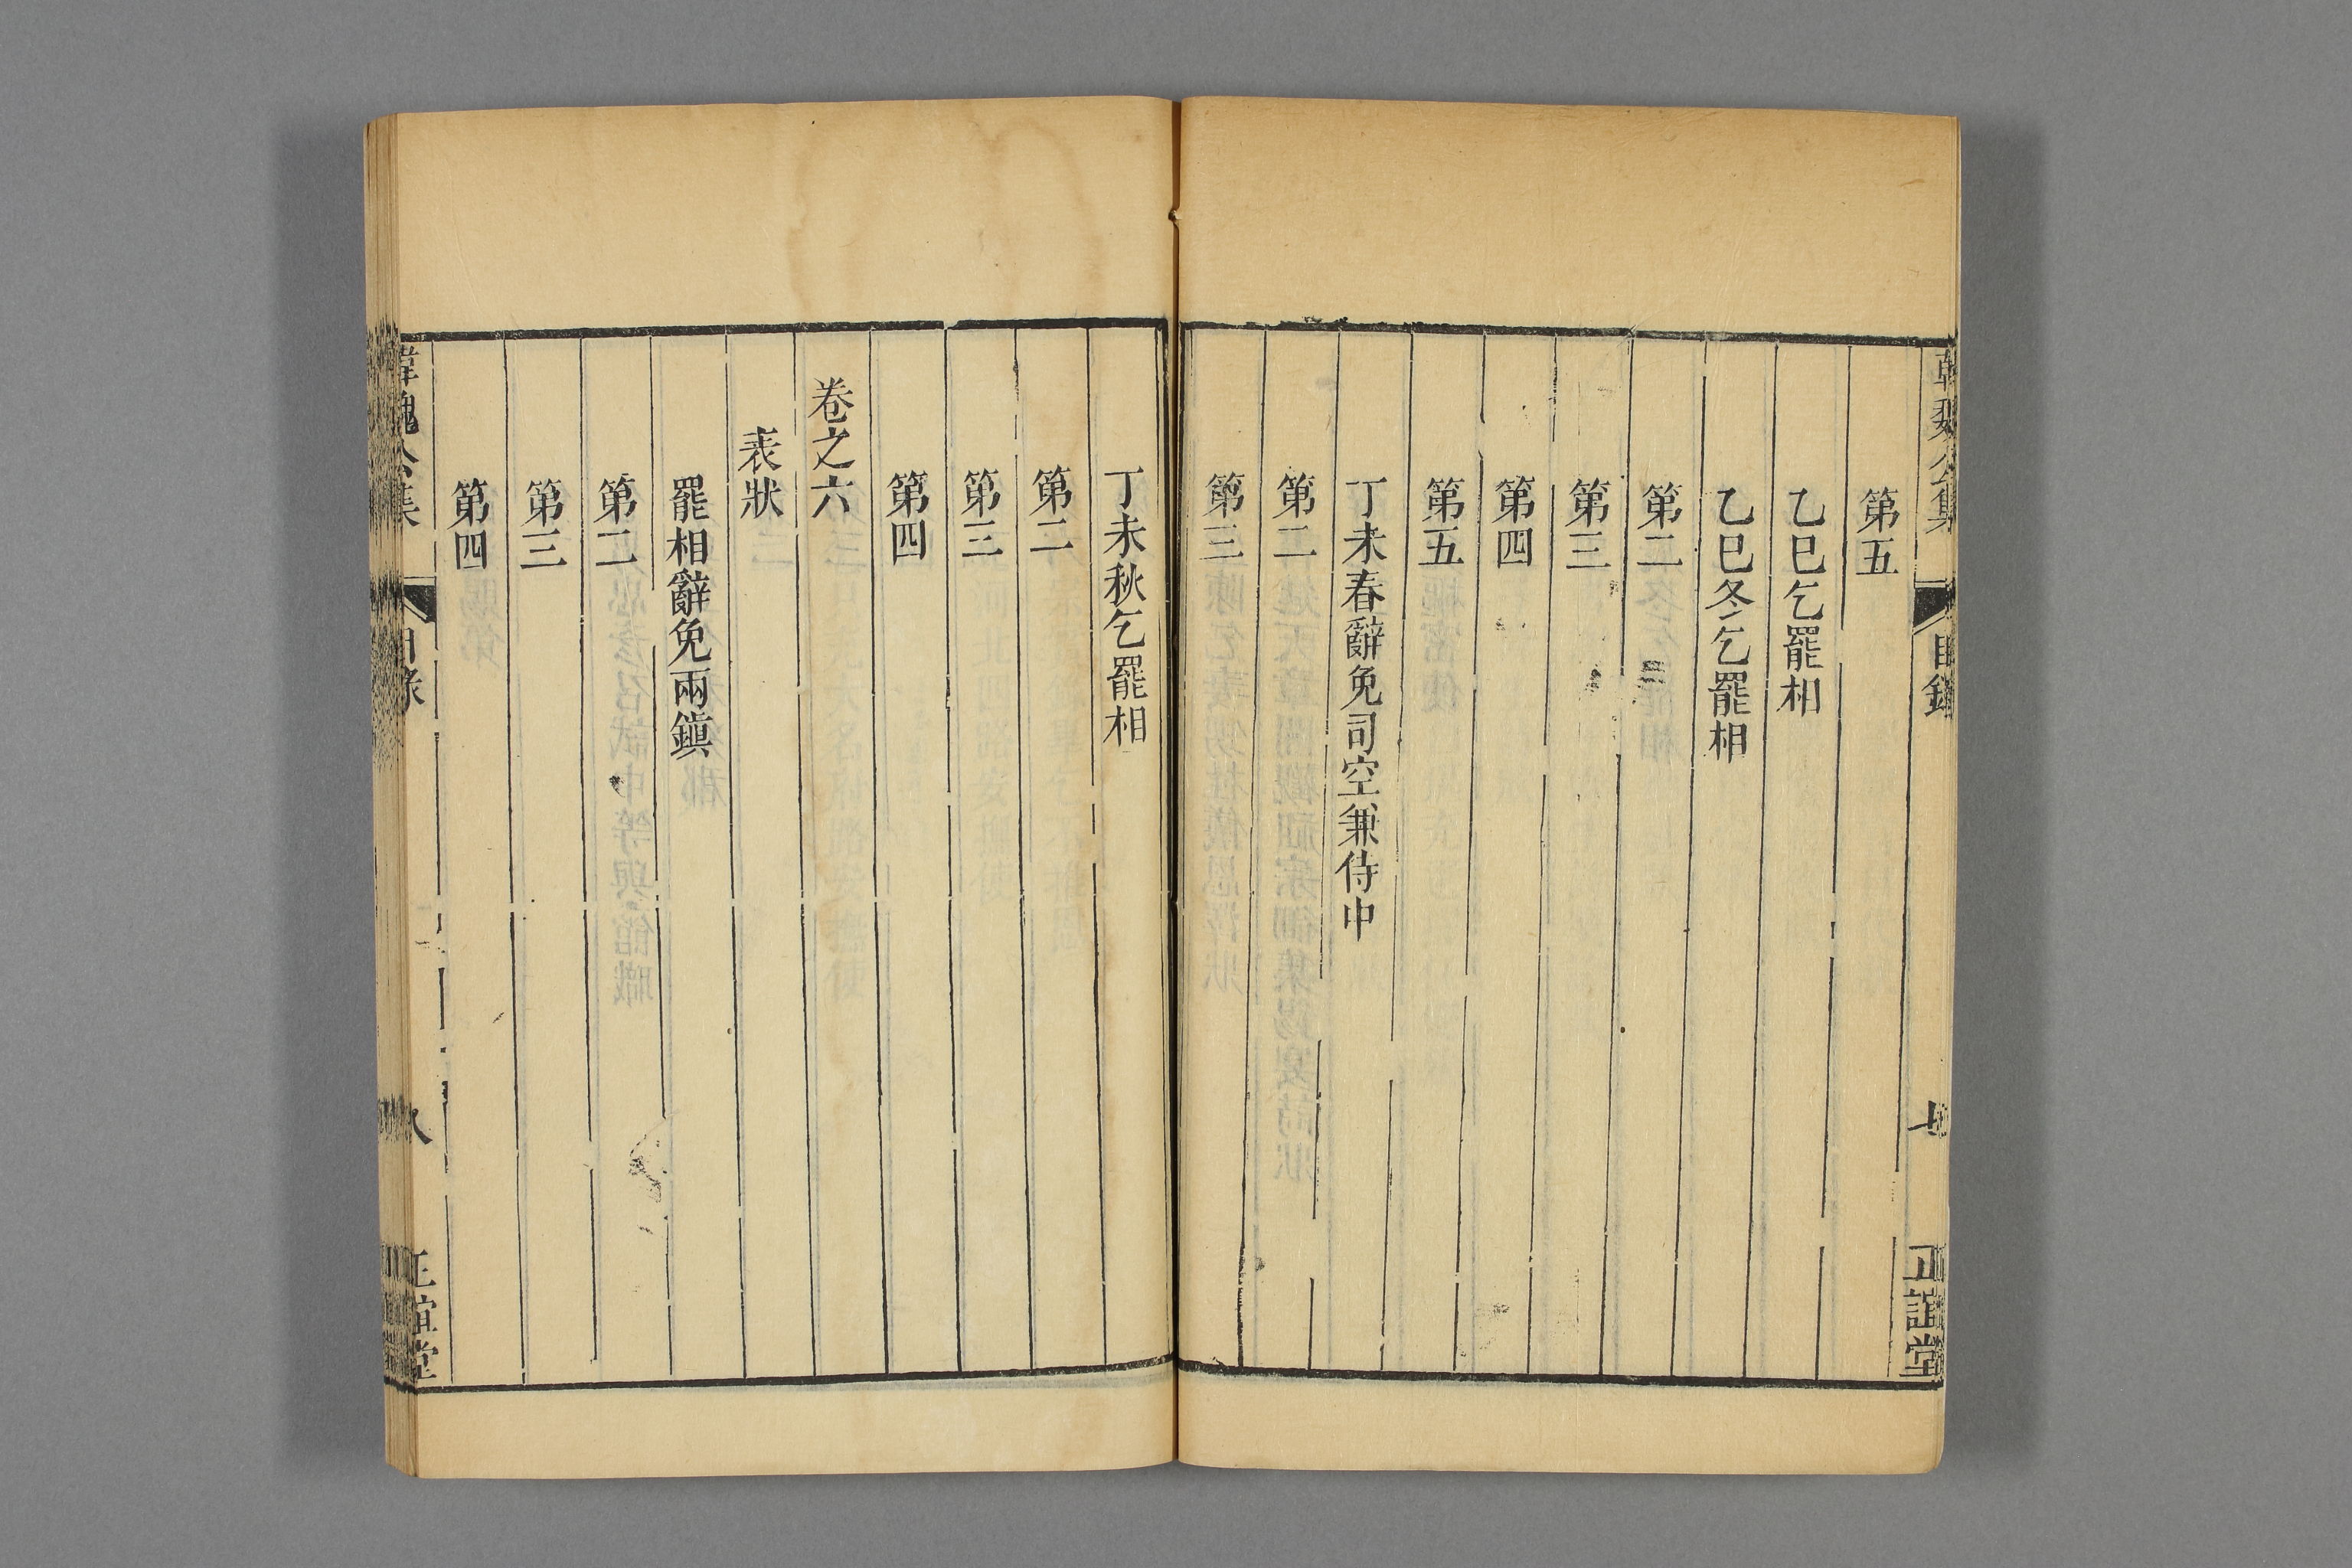 韓魏公集 目錄 七 正誼堂
第五
乙巳乞罷相
乙巳冬乞罷相
第二
第三
第四
第五
丁未春辭免司空兼侍中
第二
第三
丁未秋乞罷相
第二
第三
第四
卷之六
表狀
罷相辭免兩鎮
第二
第三
第四
韓魏公集 目錄 八 正誼堂